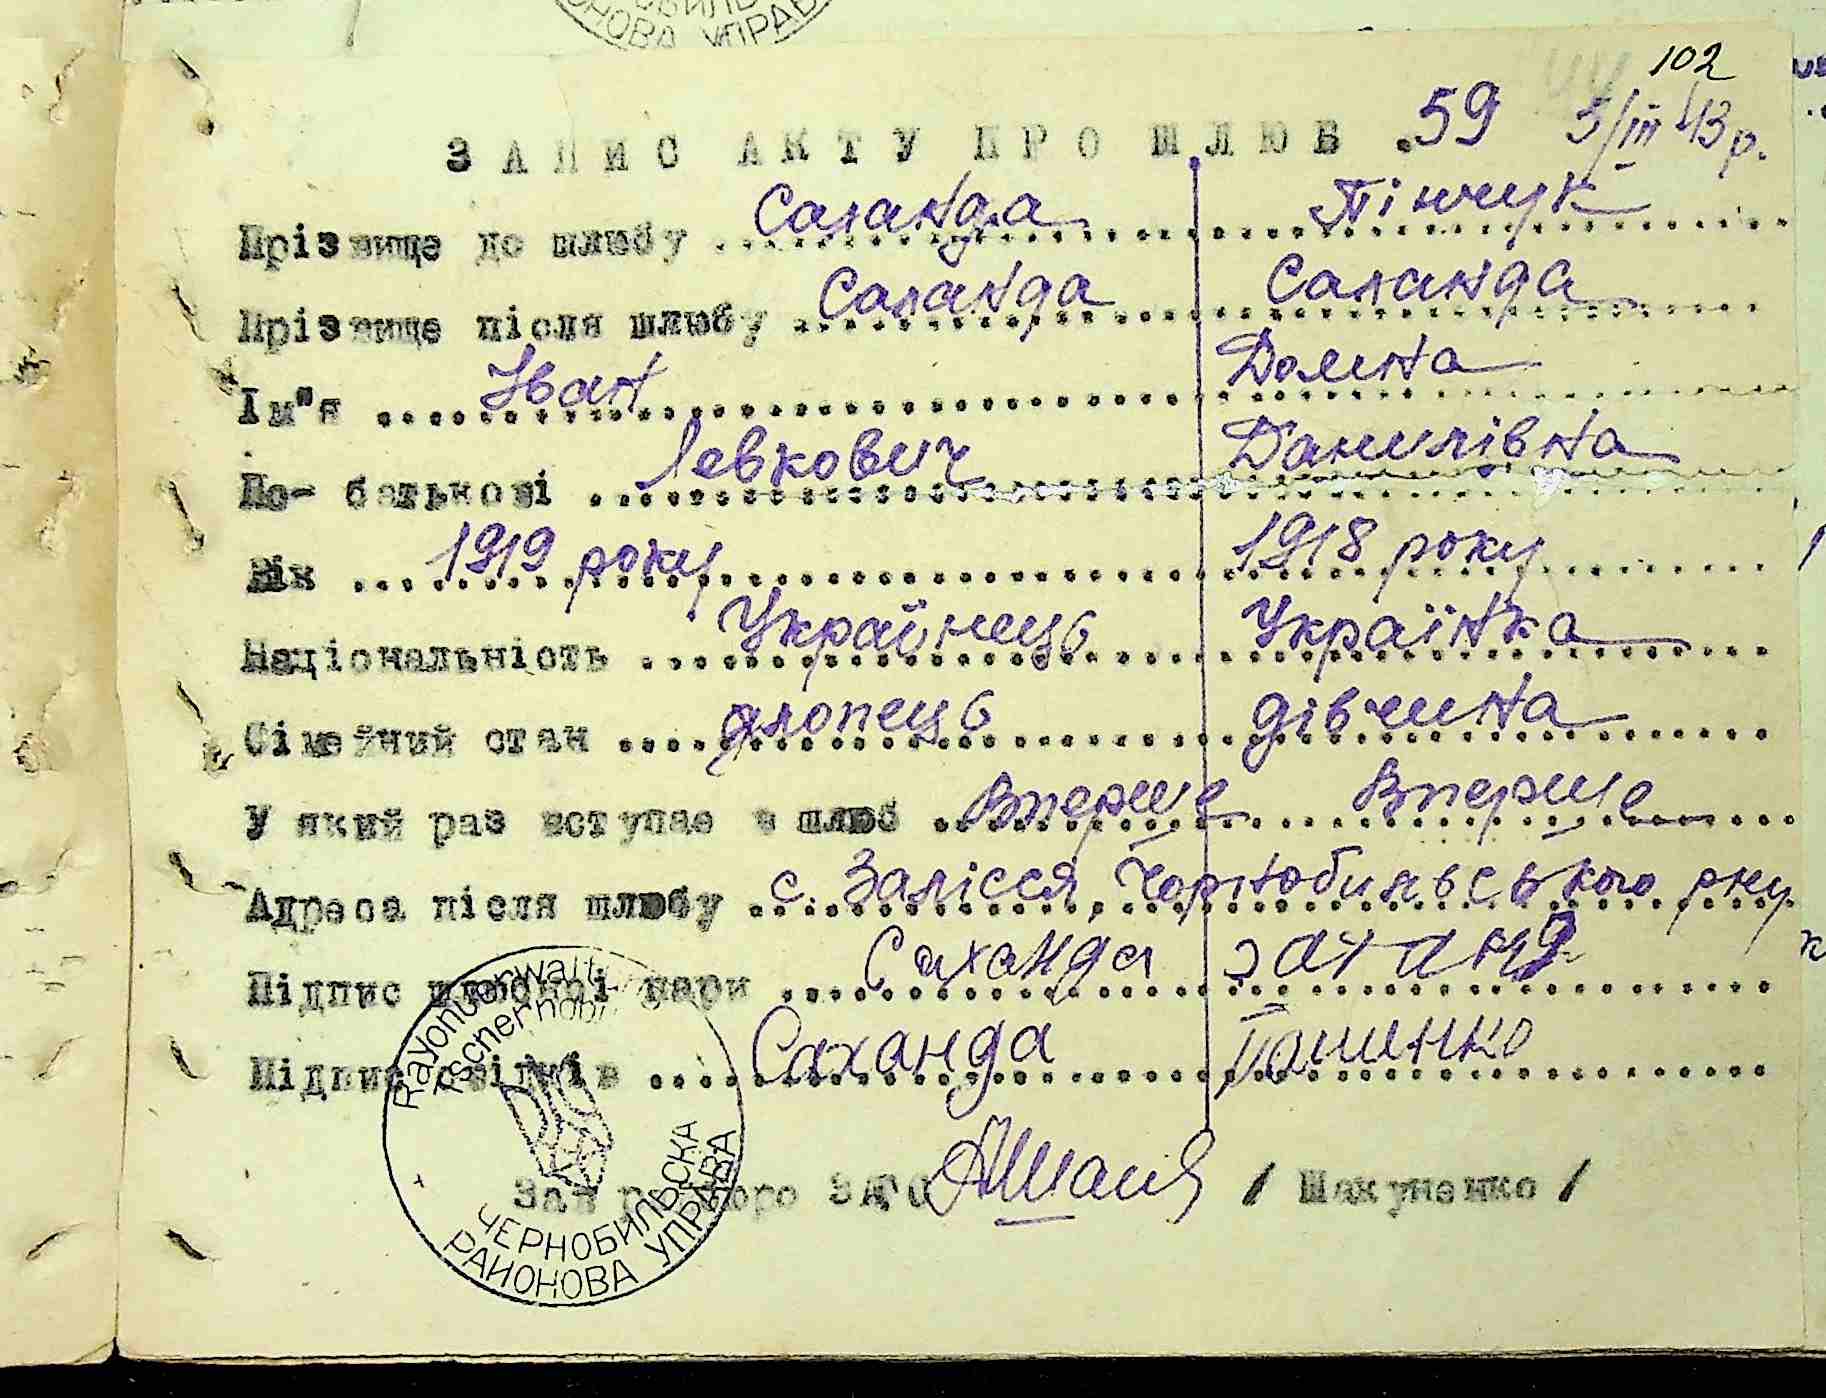 102
ЗАПИС АКТУ ПРО ШЛЮБ .59 5/III 43 р.
Прізвище до шлюбу Саланда Пінчук
Прізвище після шлюбу Саланда Саланда
Ім"я Іван Домна
По-батькові Левкович Данилівна
Вік 1919 року 1918 року
Національність Українець Українка
Сімейний стан хлопець дівчина
У який раз вступає в шлюб Вперше Вперше
Адреса після шлюбу с. Залісся, Чорнобильського р-ну
Підпис шлюбної пари Саханда
Підпис свідків Саханда
Зав рай бюро ЗАГС / Шакуненко /
Rayonverwaltung
Tschernobyl
ЧЕРНОБИЛЬСКА
РАЙОНОВА УПРАВА